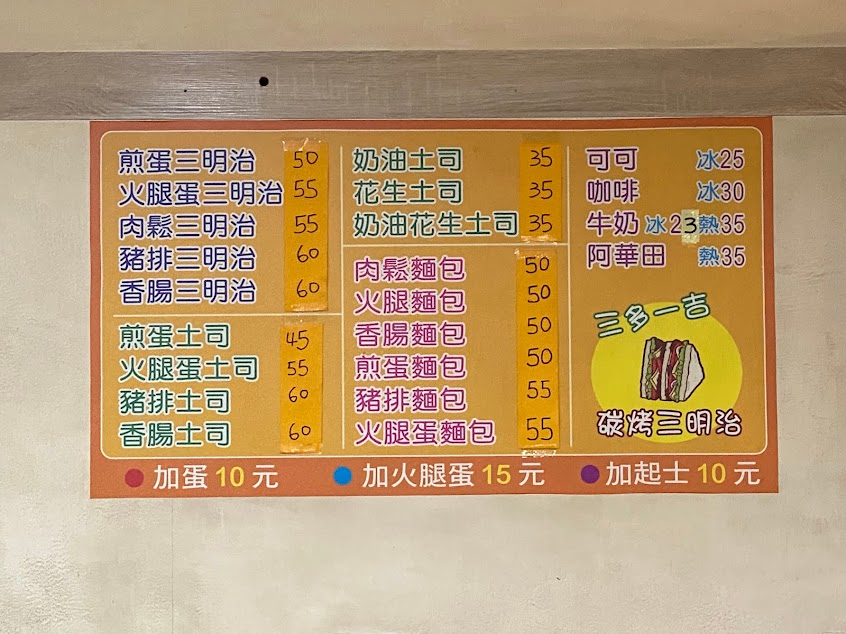 煎蛋三明治 50
火腿蛋三明治 55
肉鬆三明治 55
豬排三明治 60
香腸三明治 60
煎蛋土司 45
火腿蛋土司 55
豬排土司 60
香腸土司 60
奶油土司 35
花生土司 35
奶油花生土司 35
肉鬆麵包 50
火腿麵包 50
香腸麵包 50
煎蛋麵包 50
豬排麵包 55
火腿蛋麵包 55
可可 冰25
咖啡 冰30
牛奶 冰23熱35
阿華田 熱35
三多一吉
碳烤三明治
加蛋10元 加火腿蛋15元 加起士10元